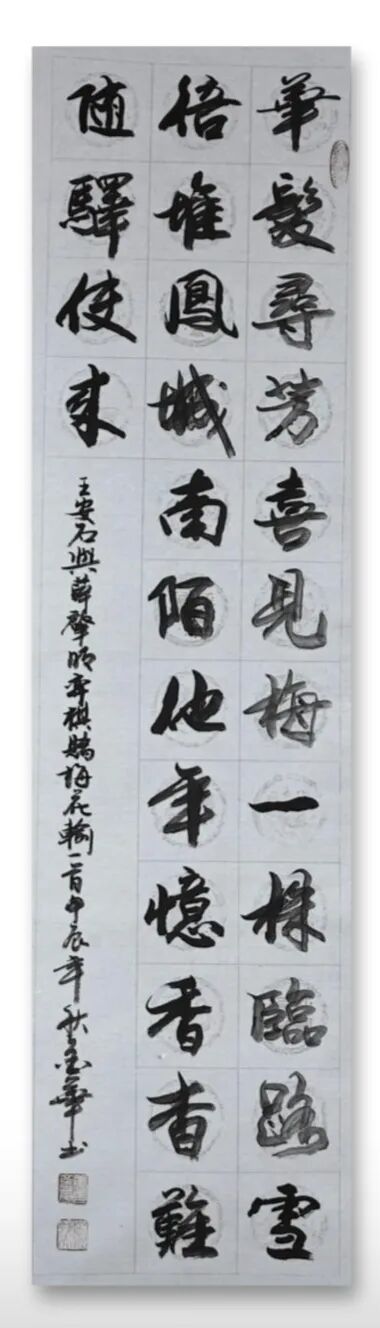 華髮尋芳喜見梅一株臨路雪
倍堆鳳城南陌他年憶香杳難
随驛使来
王安石與薛肇明弈棋賭梅花輸一首甲辰年秋華书